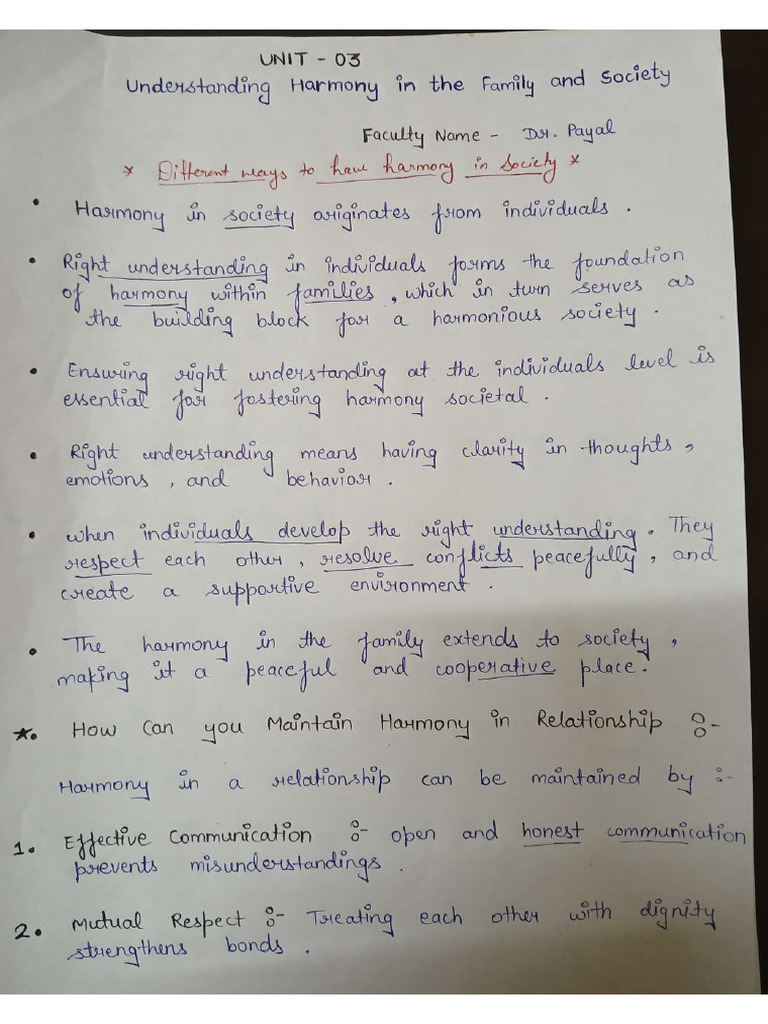 UNIT - 03
Understanding Harmony in the Family and Society
Faculty Name - Dr. Payal
* Different ways to have harmony in Society *
• Harmony in society originates from individuals.
• Right understanding in individuals forms the foundation
of harmony within families, which in turn serves as
the building block for a harmonious society.
• Ensuring right understanding at the individuals level is
essential for fostering harmony societal.
• Right understanding means having clarity in thoughts,
emotions, and behavior.
• when individuals develop the right understanding. They
respect each other, resolve conflicts peacefully, and
create a supportive environment.
• The harmony in the family extends to society,
making it a peaceful and cooperative place.
*. How Can you Maintain Harmony in Relationship :-
Harmony in a relationship can be maintained by :-
1. Effective Communication :- open and honest communication
prevents misunderstandings.
2. Mutual Respect :- Treating each other with dignity
strengthens bonds.